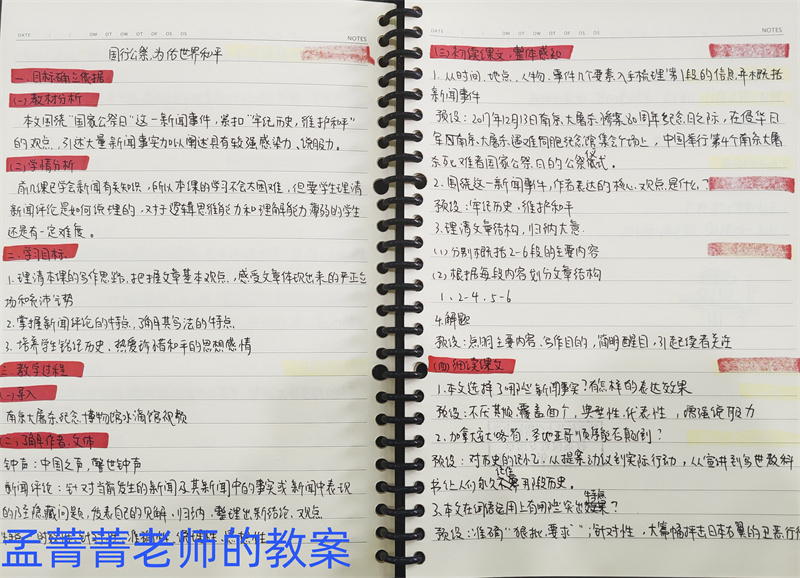 DATE
NOTES
国行公祭,为佑世界和平
一、目标确立依据
(一)教材分析
本文围绕"国家公祭日"这一新闻事件,紧扣"牢记历史,维护和平"
的观点,引述大量新闻事实加以阐述具有较强感染力、说服力。
(二)学情分析
前几课已学会新闻有关知识,所以本课的学习不会太困难,但要学生理清
新闻评论是如何说理的,对于逻辑思维能力和理解能力薄弱的学生
还是有一定难度。
二、学习目标
1.理清本课的写作思路,把握文章基本观点,感受文章体现出来的严正立
场和充沛气势
2.掌握新闻评论的特点,了解其写法的特点
3.培养学生铭记历史、热爱珍惜和平的思想感情
三、教学过程
(一)导入
南京大屠杀纪念博物馆水滴馆视频
(二)了解作者、文体
钟声:中国之声,警世钟声
新闻评论:针对当前发生的新闻及其新闻中的事实或新闻中表现
的隐藏问题,发表自己的见解,归纳、整理出新结论、观点
孟菁菁老师的教案
NOTES
(三)初读课文,整体感知
1.从时间、地点、人物、事件几个要素入手梳理第1段的信息,并概括
新闻事件
预设:2017年12月13日南京大屠杀惨案80周年纪念日之际,在侵华日
军南京大屠杀遇难同胞纪念馆集会广场上,中国举行第4个南京大屠
杀死难者国家公祭日的公祭仪式
2.围绕这一新闻事件,作者表达的核心观点是什么?
预设:牢记历史,维护和平
3.理清文章结构,归纳大意
(1)分别概括2-6段的主要内容
(2)根据每段内容划分文章结构
1、2-4、5-6
4.解题
预设:点明主要内容、写作目的,简明醒目,引起读者关注
(四)细读课文
1.本文选择了哪些新闻事实?有怎样的表达效果
预设:不厌其烦,覆盖面广,典型性,代表性,增强说服力
2.加拿大安大略省,圣地亚哥顺序能否颠倒?
预设:对历史的记忆,从提案动议到实际行动,从宣讲到写进教科
书,让人们永久记住那段历史。
3.本文在词语运用上有哪些突出特点?
预设:准确"狠批、要求";针对性,大篇幅抨击日本右翼的丑恶行